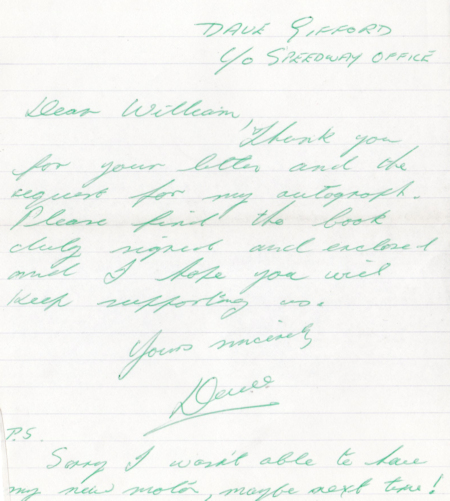 DAVE GIFFORD
C/O SPEEDWAY OFFICE
Dear William,
Thank you
for your letter and the
request for my autograph.
Please find the book
duly signed and enclosed
and I hope you will
keep supporting us.
Yours sincerely
Dave
P.S.
Sorry I wasn't able to have
my new motor, maybe next time!